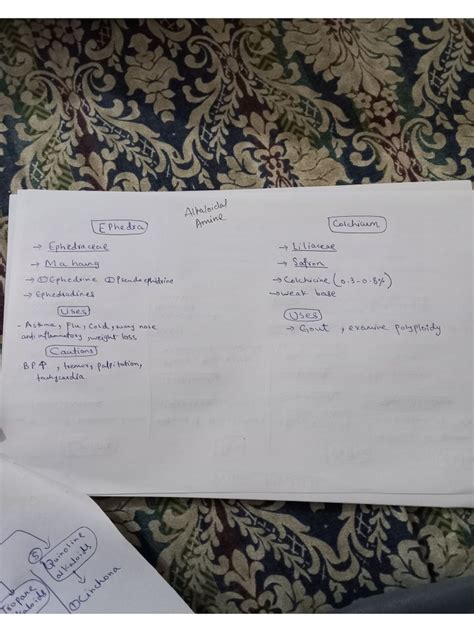 Alkaloidal
Amine
Ephedra
→ Ephedraceae
→ Ma haung
→ ① Ephedrine ② Pseudoephidrine
→ Ephedradines
Uses
- Astma, Flu, Cold, runy nose
anti inflammatory, weight loss
Cautions
BP↑, tremors, palpitation,
tachycardia
Colchicum
→ Liliaceae
→ Safron
→ Colchicine (0.3-0.8%)
→ weak base
Uses
→ Gout, exansive polyploidy
⑤ Quinoline
alkaloids
① Cinchona
Tropane